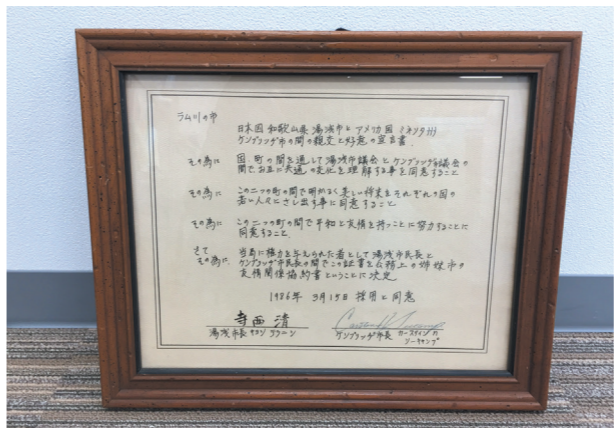 ラム川の市
日本国 和歌山県 湯浅市と アメリカ国 ミネソタ州
ケンブリッヂ市の間の親交と好意の宣言書
その為に 国、町の間を通して湯浅市議会とケンブリッヂ市議会の
間でお互に共通の文化を理解する事を同意すること
その為に この二ツの町の間で明かるく美しい将来をそれぞれの国の
若い人々にさし出す事に同意すること
その為に この二ツの町の間で平和と友情を持つことに努力することに
同意すること
さて
その為に 当局に権力を与えられた者として湯浅市民長と
ケンブリッヂ市民長の間でこの証書を公務上の姉妹市の
友情関係協約書ということに決定
1986年 3月15日 採用と同意
寺西 清
湯浅市長
ケンブリッヂ市長